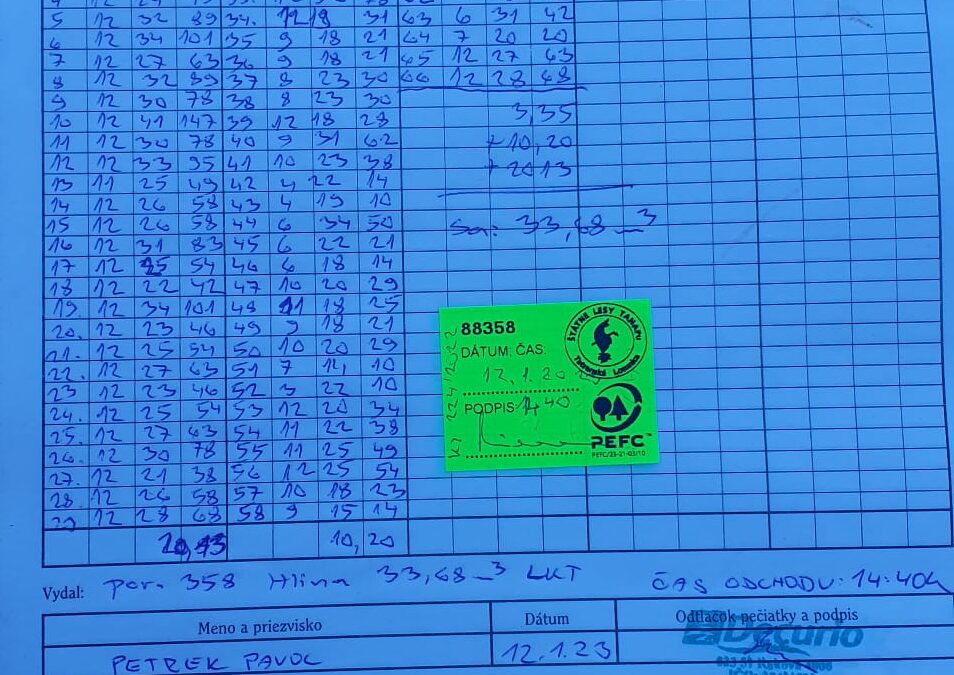 5 12 32 89 34. 12 18 31 63 6 31 42
6 12 34 101 35 9 18 21 64 7 20 20
7 12 27 63 36 9 18 21 65 12 27 63
8 12 32 89 37 8 23 30 66 12 28 68
9 12 30 78 38 8 23 30 3,35
10 12 41 147 39 12 18 28
11 12 30 78 40 9 31 62 +10,20
12 12 33 95 41 10 23 38 + 2013
13 11 25 49 42 4 22 14
14 12 26 58 43 4 19 10
15 12 26 58 44 6 34 50 Sa: 33,68 m3
16 12 31 83 45 6 22 21
17 12 25 54 46 6 18 14
18 12 22 42 47 10 20 29
19. 12 34 101 48 11 18 25
20. 12 23 46 49 9 18 21
21. 12 25 54 50 10 20 29
22. 12 27 63 51 7 10
23 12 23 46 52 3 22 10
24. 12 25 54 53 12 20 34
25. 12 27 63 54 11 22 38
26. 12 30 78 55 11 25 49
27. 12 21 38 56 12 25 54
28 12 26 58 57 10 18 23
29 12 28 68 58 9 15 14
10,20
88358
DÁTUM, ČAS:
12.1.20
PODPIS: 14,40
ŠTÁTNE LESY TANAPU
Tatranská Lomnica
PEFC™
PEFC/23-21-03/10
Vydal: por. 358 Hlina 33,68 m3 LKT ČAS ODCHODU: 14:40h
Meno a priezvisko Dátum Odtlačok pečiatky a podpis
PETREK PAVOL 12.1.23 Decurio